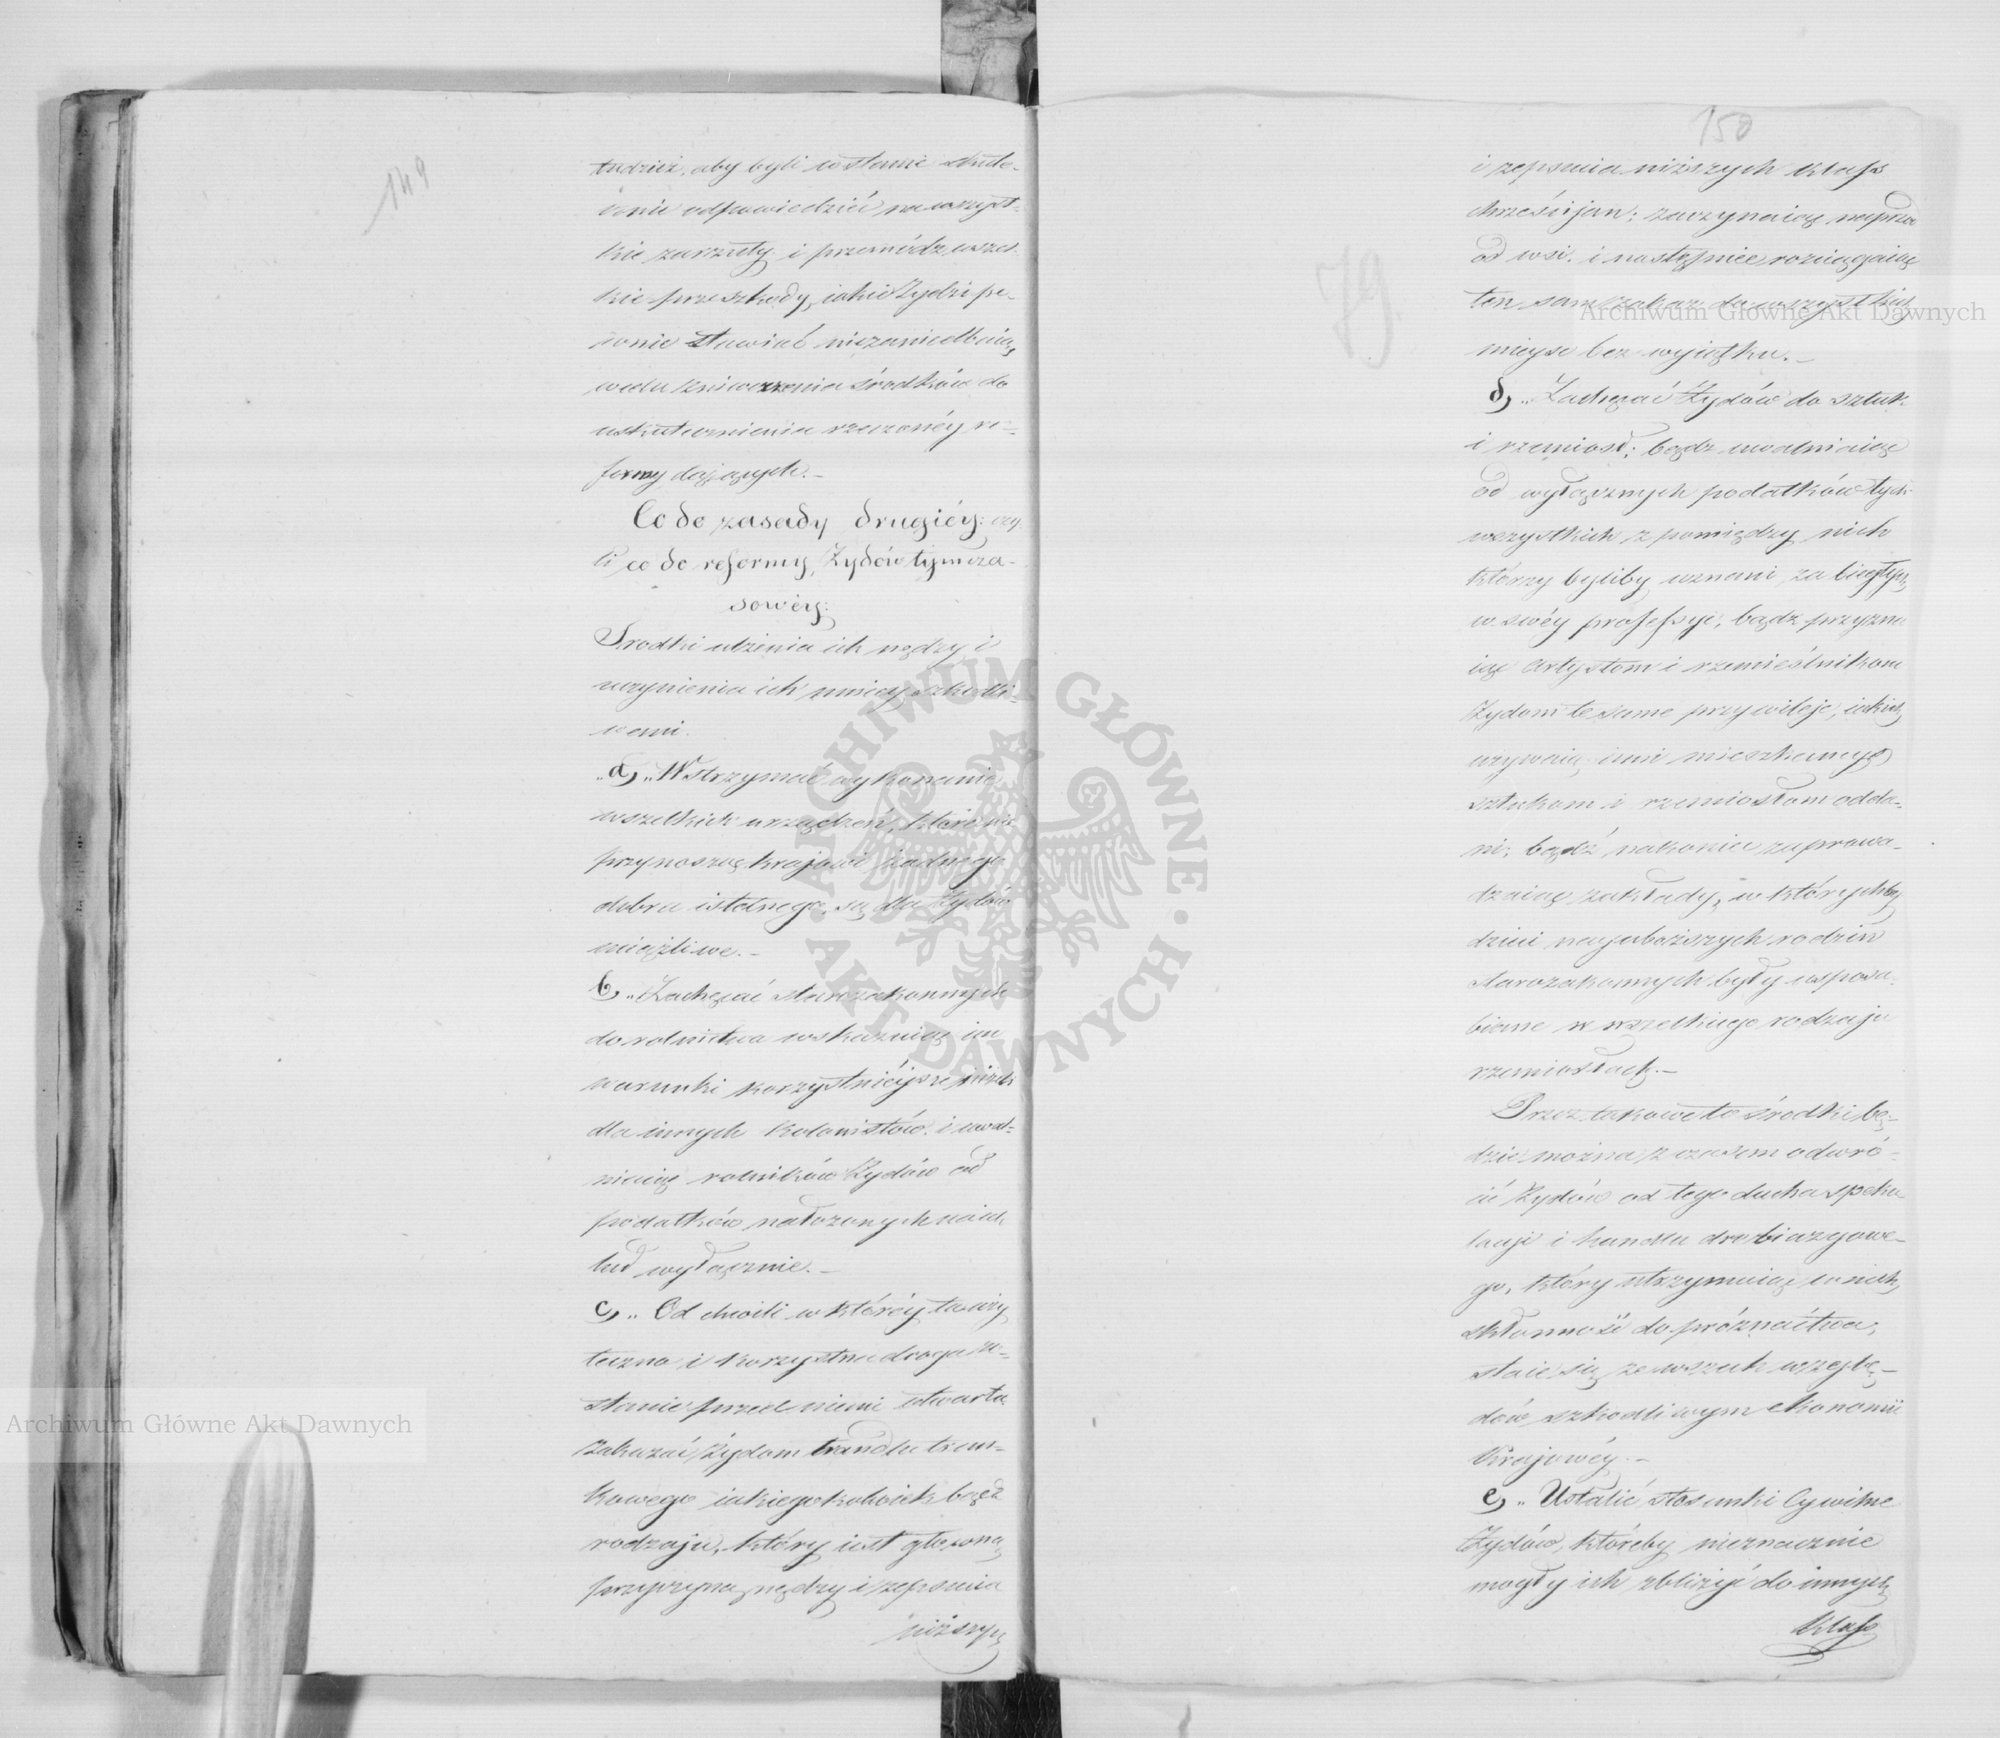 149
tudzież, aby byli w stanie skute-
cznie odpowiedzieć na wszyst-
kie zarzuty i przemódz wszel-
kie przeszkody, iakie Żydzi pe-
wnie stawiać niezaniedbaią,
w celu zniweczenia środków do
uskutecznienia rzeczonéy re-
formy dążących. –
Co do zasady drugiéy: czy
li co do reformy, Żydów tymcza-
sowéy:
Srodki ulżenia ich nędzy i
uczynienia ich mniey szkodli-
wemi.
„a,„ Wstrzymać wykonanie
wszelkich urządzeń, które nie
przynosząc krajowi żadnego
dobra istotnego, są dla Żydów
uciążliwe. –
b,„ Zachęcać starozakonnych
do rolnictwa wskazuiąc im
warunki korzystnieysze niżeli
dla innych kolonistów. i uwal-
niaiąc rolników Żydów od
podatków nałożonych na ich
lud wyłącznie. –
c,„ Od chwili w któréy ta uży
teczna i korzystna droga zo-
stanie przed niemi otwarta
zakazać Żydom handlu trun-
kowego iakiegokolwiek bądź
rodzaju, który iest główną
przyczyną nędzy i zepsucia
niższych
150
79.
i zepsucia niższych klass
chrześcijan; zaczynaiąc naprzód
od wsi. i następnie rozciągaiąc
ten sam zakaz do wszystkich
mieysc bez wyjątku. –
d,„ Zachęcać Żydów do sztuk
i rzemiosł; bądz uwalniaiąc
od wyłącznych podatków tych
wszystkich z pomiędzy nich
którzy byliby uznani, za biegłych
w swéy professyi, bądz przyzna
iąc artystom i rzemieślnikom
Żydom te same przywileje, iakich
używaią inni mieszkańcy
sztukom i rzemiosłom odda-
ni; bądź nakoniec zaprowa-
dzaiąc zakłady, w którychby
dzieci nayuboższych rodzin
starozakonnych były usposa-
biane w wszelkiego rodzaju
rzemiosłach. –
Przez takowe to środki bę-
dzie można z czasem odwró-
cić Żydów od tego ducha speku-
lacyi i handlu drobiazgowe-
go, który utrzymuiąc w nich,
skłonność do próżniactwa;
staie się ze wszech wzglę-
dów szkodliwym ekonomii
Krajowéy. –
e,„ Ustalić stosunki Cywilne
Żydów, któreby nieznacznie
mogły ich zbliżyć do innych
klass
Archiwum Główne Akt Dawnych
Archiwum Główne Akt Dawnych
ARCHIWUM GŁÓWNE · AKT DAWNYCH ·